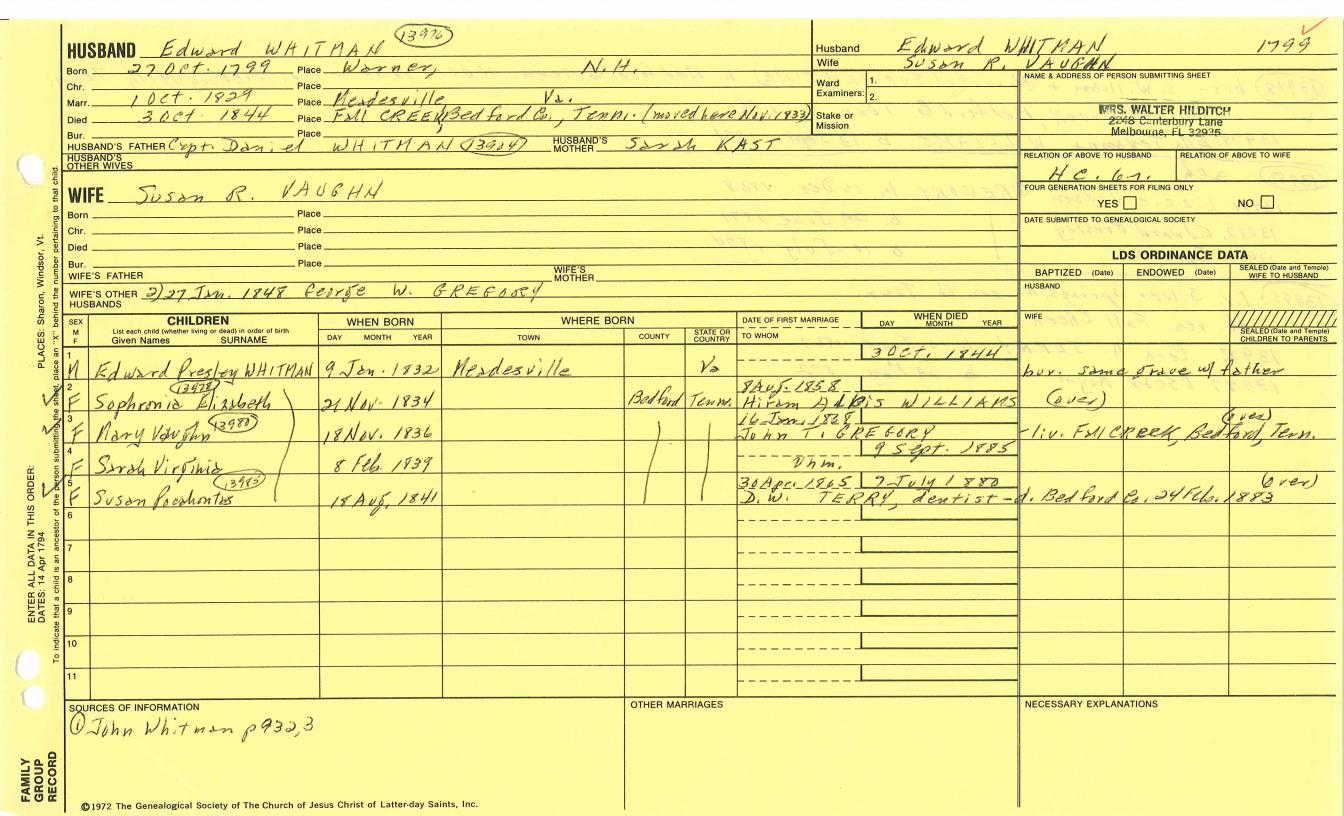 HUSBAND Edward WHITMAN 13976
Born 27 Oct. 1799 Place Warner, N.H.
Chr. Place
Marr. 1 Oct. 1829 Place Meadesville Va.
Died 3 Oct. 1844 Place Fall CREEK, Bedford Co., Tenn. (moved here Nov. 1833)
Bur. Place
HUSBAND'S FATHER Capt. Daniel WHITMAN 13924 HUSBAND'S MOTHER Sarah KAST
HUSBAND'S OTHER WIVES
Husband Edward WHITMAN 1799
Wife Susan R. VAUGHN
Ward Examiners: 1.
2.
Stake or Mission
NAME & ADDRESS OF PERSON SUBMITTING SHEET
MRS. WALTER HILDITCH
2248 Canterbury Lane
Melbourne, FL 32935
RELATION OF ABOVE TO HUSBAND RELATION OF ABOVE TO WIFE
FOUR GENERATION SHEETS FOR FILING ONLY
YES NO
DATE SUBMITTED TO GENEALOGICAL SOCIETY
WIFE Susan R. VAUGHN
Born Place
Chr. Place
Died Place
Bur. Place
WIFE'S FATHER WIFE'S MOTHER
WIFE'S OTHER HUSBANDS 2) 27 Jan. 1848 George W. GREGORY
LDS ORDINANCE DATA
BAPTIZED (Date) ENDOWED (Date) SEALED (Date and Temple) WIFE TO HUSBAND
HUSBAND
WIFE
SEALED (Date and Temple) CHILDREN TO PARENTS
SEX M F CHILDREN List each child (whether living or dead) in order of birth Given Names SURNAME
WHEN BORN DAY MONTH YEAR
WHERE BORN TOWN COUNTY STATE OR COUNTRY
DATE OF FIRST MARRIAGE TO WHOM
WHEN DIED DAY MONTH YEAR
3 Oct. 1844
1 M Edward Presley WHITMAN 9 Jan. 1832 Meadesville Va bur. same grave w/ father
13978 8 Aug. 1858
2 F Sophronia Elizabeth 21 Nov. 1834 Bedford Tenn. Hiram WILLIAMS (over)
13980 (over)
3 F Mary Vaughn 18 Nov. 1836 John T. GREGORY -liv. Fall CREEK, Bedford, Tenn.
9 Sept. 1885
4 F Sarah Virginia 8 Feb. 1839 Unm.
13983 30 Apr. 1865 7 July 1880 (over)
5 F Susan Pocahontas 18 Aug. 1841 D.W. TERRY, dentist-d. Bedford Co. 24 Feb. 1883
6
7
8
9
10
11
SOURCES OF INFORMATION
① John Whitman p932,3
OTHER MARRIAGES
NECESSARY EXPLANATIONS
©1972 The Genealogical Society of The Church of Jesus Christ of Latter-day Saints, Inc.
FAMILY GROUP RECORD
ENTER ALL DATA IN THIS ORDER:
DATES: 14 Apr 1794 PLACES: Sharon, Windsor, Vt.
To indicate that a child is an ancestor of the person submitting the sheet, place an "X" behind the number pertaining to that child.